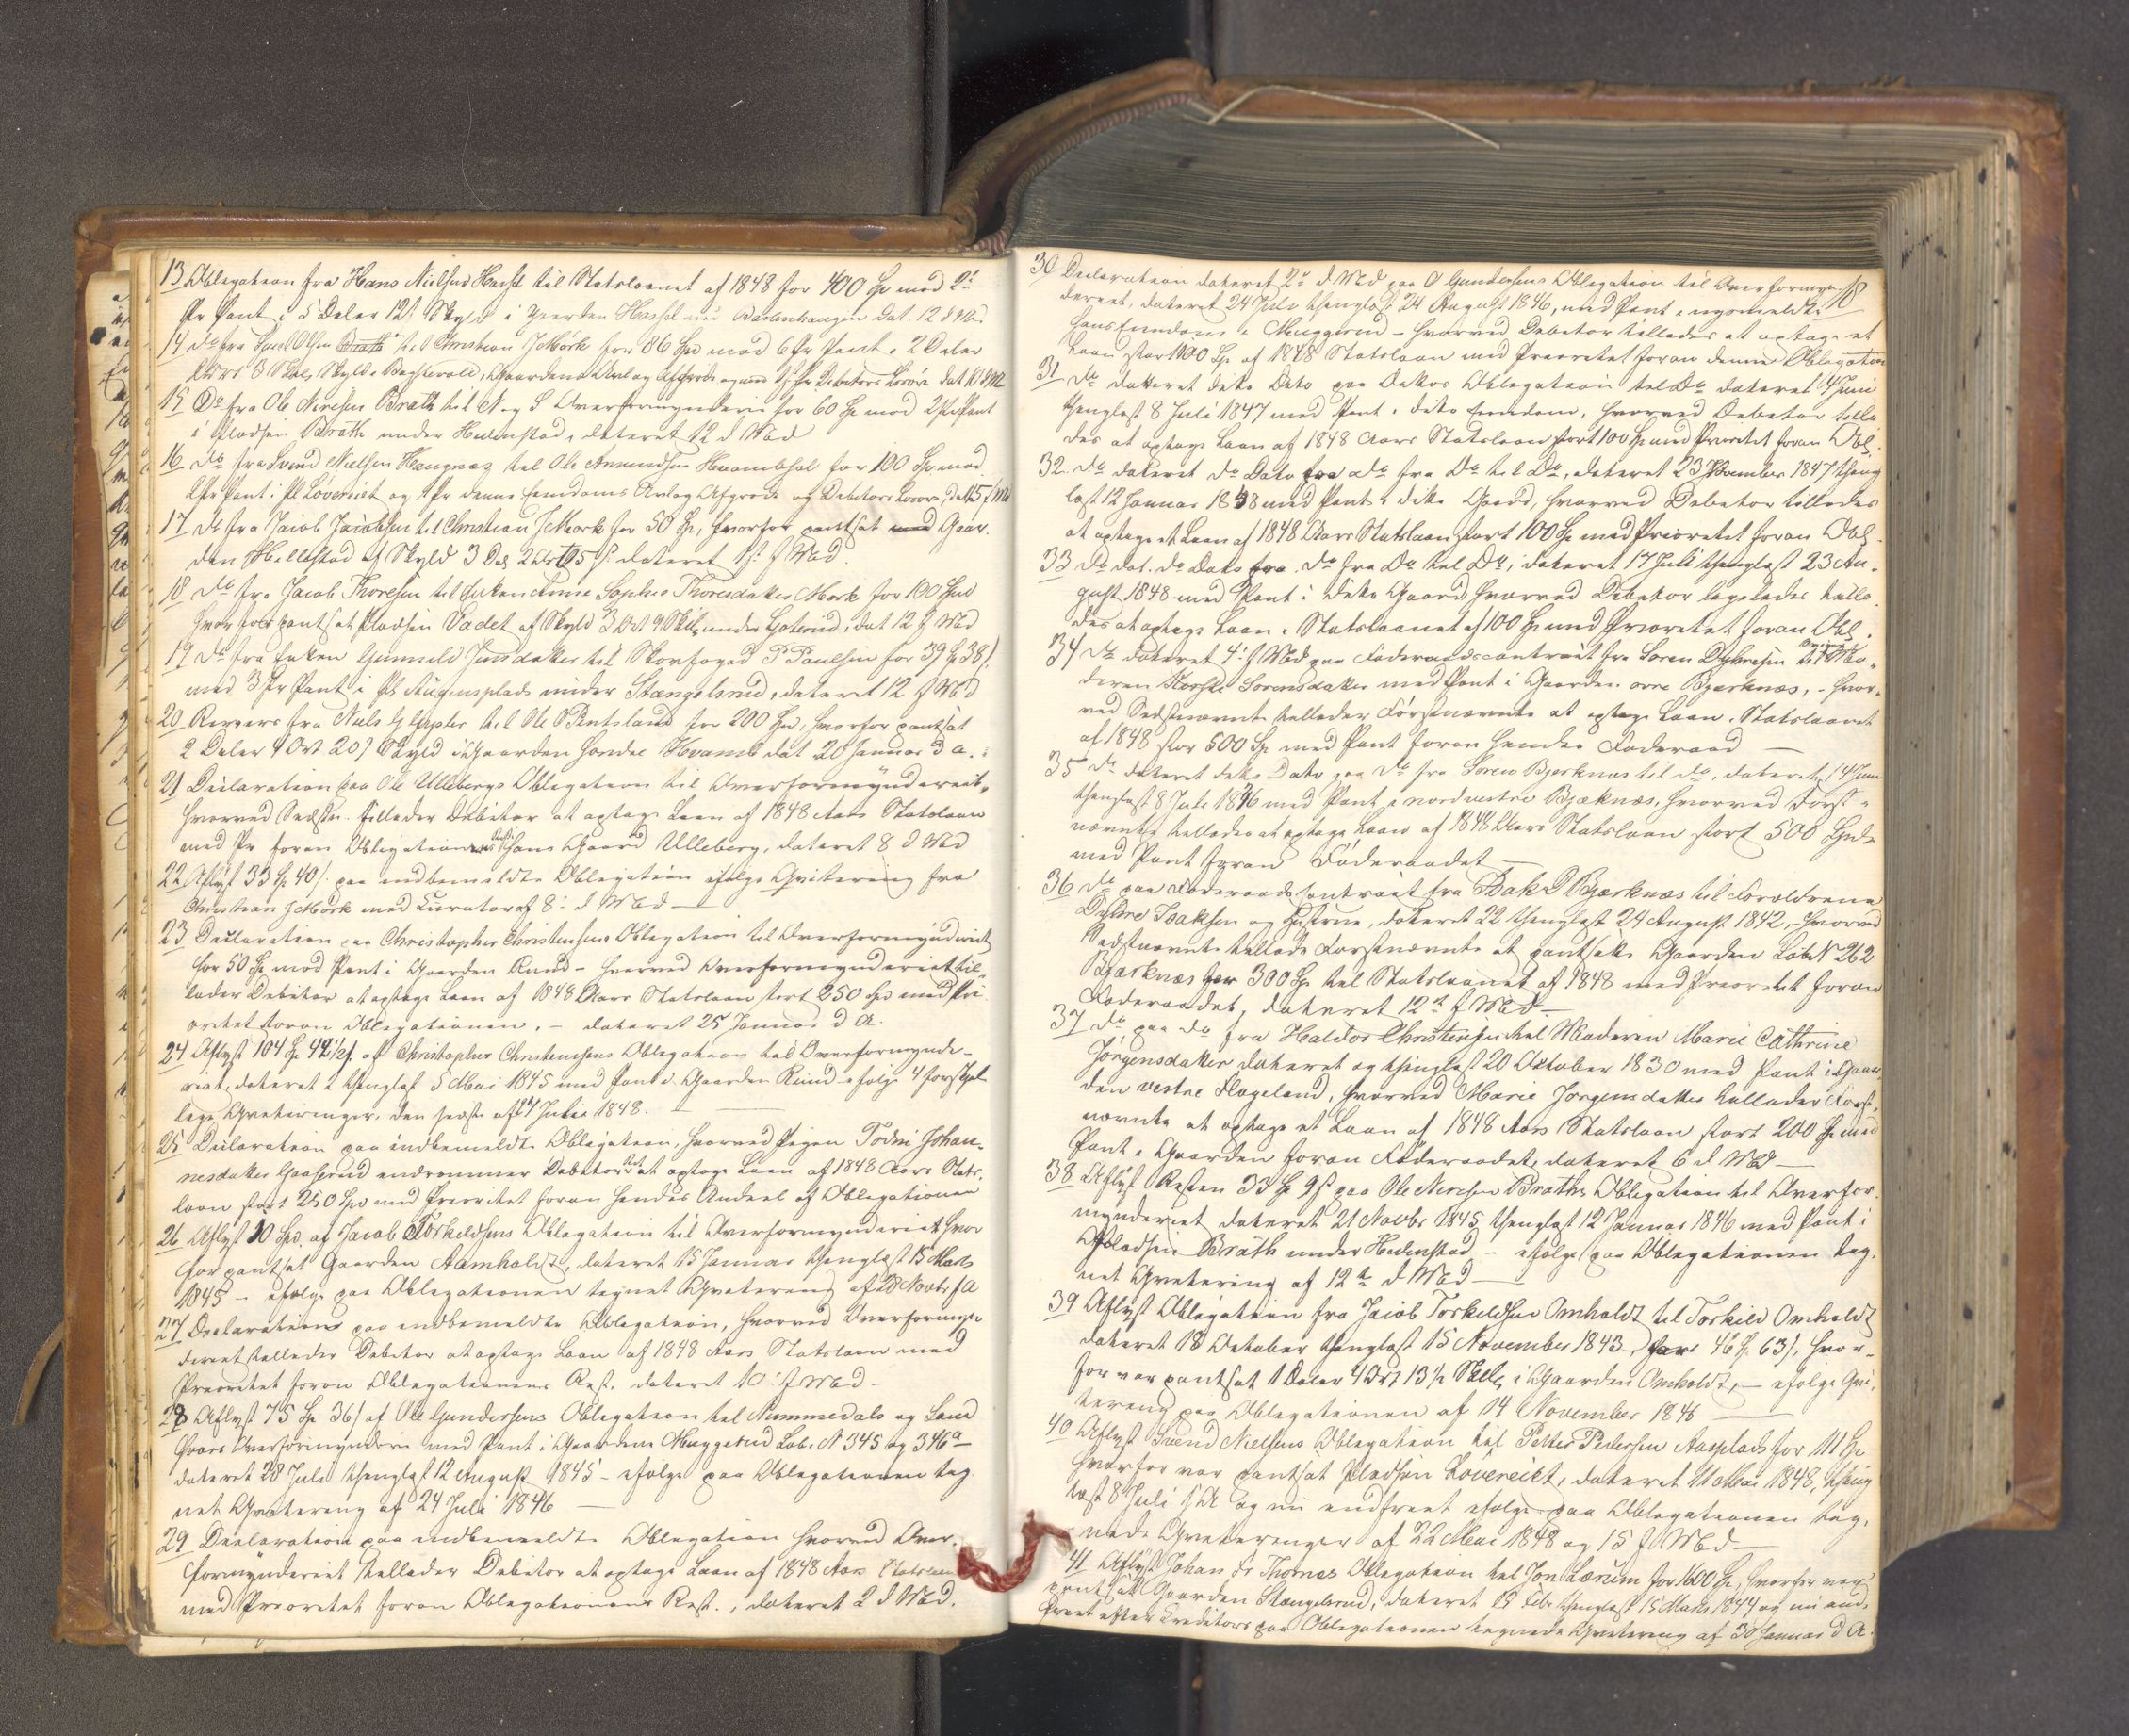 13 Obligation fra Hans Nielsen Hassel til Statslaanet af 1848 for 400 Sp mod 2t
Pr Pant i 5 Daler 12s Skyld i Gaarden Hassel med Barbenhaugen dat. 12 d Md.
14 do fra Ole Olsen til Christian J Mørk for 86 Spd mod 6 Pr Pant i 2 Daler
Gaardens Avl og Afgrøde og Debitors Løsøre dat 10 d Md
15 Do fra Ole Nirisen Braath til N og S Overformynderi for 60 Sp mod 2 Pr Pant
i Pladsen Braath under Hedenstad, dateret 12 d Md
16 do fra Svend Nielsen Haugnæs til Ole Amundsen Huambsal for 100 Sp mod
1 Pr Pant i Pl Løvereiet og 1 Pr denne Eiendoms Avl og Afgrøde og Debitors Løsøre, dat 15 f Md
17 do fra Jacob Jacobsen til Christian J Mørk for 50 Sp, hvorfor pantsat Gaar-
den Hellestad af Skyld 3 Dal 2 Ort 5 s dateret 1st f Md.
18 do fra Jacob Thoresen til Enken Anne Sophie Thoresdatter Mørk for 100 Spd
hvorfor pantsat Pladsen Vadet af Skyld 3 Ort 9 Skill under Goterud, dat 12 f Md
19 do fra Enken Gunnild Jensdatter til Skovfoged P Paulsen for 39 Sp 38 s
med 3 Pr Pant i Pl Augensplads under Stængelsrud, dateret 12 f Md
20 Revers fra Niels G til Ole S Bentsland for 200 Spd, hvorfor pantsat
2 Daler 1 Ort 20 s Skyld i Gaarden Søndre Kvamb dat 28 Januar d A.
21 Declaration paa Ole Ullebergs Obligation til Overformynderiet,
hvorved Sidstn. tillader Debitor at optage Laan af 1848 Aars Statslaan
med Pr foran Obligationen i hans Gaard Ulleberg, dateret 8 d Md
22 Aflyst 33 Sp 40 s paa indbemeldte Obligation ifølge Qvitering fra
Christian J Mørk med Curator af 8 d Md
23 Declaration paa Christopher Christensens Obligation til Overformynderiet
for 50 Sp mod Pant i Gaarden Ruud - hvorved Overformynderiet til-
lader Debitor at optage Laan af 1848 Aars Statslaan stort 250 Spd med Pri-
oritet foran Obligationen. - dateret 25 Januar d A.
24 Aflyst 104 Sp 42 1/2 s af Christopher Christensens Obligation til Overformynde-
riet, dateret 2 thinglæst 5 Mai 1845 med Pant i Gaarden Ruud ifølge 4 forskjel-
lige Qviteringer, den sidste af 27 Juli 1848.
25 Declaration paa indbemeldte Obligation, hvorved Pigen Todni Johan-
nesdatter Gaaserud indrømmer Debitor Ret at optage Laan af 1848 Aars Stats-
laan stort 250 Spd med Prioritet foran hendes Andeel af Obligationen
26 Aflyst 10 Spd. af Jacob Torkeldsens Obligation til Overformynderiet hvor
for pantsat Gaarden Aamholdt, dateret 15 Januar thinglæst 15 Marts
1845 - ifølge paa Obligationen tegnet Qvitering af 28 Novbr f A
27 Declaration paa indbemeldte Obligation, hvorved Overformyn-
deriet tillader Debitor at optage Laan af 1848 Aars Statslaan med
Prioritet foran Obligationens Rest. dateret 10 f Md -
28 Aflyst 75 Sp 36 s af Ole Gundersens Obligation til Nummedals og Sand
sværs Overformynderi med Pant i Gaarden Muggerud Løb. N 345 og 346a
dateret 28 Juli thinglæst 12 August 1845 - ifølge paa Obligationen teg-
net Qvitering af 24 Juli 1846
29 Declaration paa indbemeldte Obligation hvorved Over-
formynderiet tillader Debitor at optage Laan af 1848 Aars Statslaan
med Prioritet foran Obligationens Rest., dateret 2 d Md.
30 Declaration dateret 2 d Md paa O Gundersens Obligation til Overformyn-
18
deriet, dateret 24 Juli thinglæst 24 August 1846, med Pant i nysmeldte
hans Eiendom i Muggerud - hvorved Debitor tillades at optage et
Laan stor 100 Sp af 1848 Statslaan med Prioritet foran denne Obligation
31 Do dateret dito Dato paa Dattos Obligation til Do dateret 4 Juni
thinglæst 8 Juli 1847 med Pant i dito Eiendom, hvorved Debitor tilla-
des at optage Laan af 1848 Aars Statslaan stort 100 Sp med Prioritet foran Obl.
32. Do dateret do Dato do fra Do til Do, dateret 23 November 1847 thing-
læst 12 Januar 1848 med Pant i dito Gaard, hvorved Debitor tillades
at optage et Laan af 1848 Aars Statslaan stort 100 Sp med Prioritet foran Obl.
33 Do dat. do Dato do fra Do til Do, dateret 17 Juli thinglæst 23 Au-
gust 1848 med Pant i dito Gaard, hvorved Debitor ligeledes tilla-
des at optage Laan i Statslaanet af 100 Sp med Prioritet foran Obl.
34 Do dateret 4 f Md paa Føderaadscontract fra Soren Dyhresen til Mo-
deren Kirsti Sorensdatter med Pant i Gaarden øvre Bjærknæs, - hvor-
ved Sidstnævnte tillader Førstnævnte at optage Laan i Statslaanet
af 1848 stor 500 Sp med Pant foran hendes Føderaad
35 Do dateret dito Dato paa do fra Soren Bjerknæs til do, dateret 14 Juni
thinglæst 8 Juli 1846 med Pant i nordvestre Bjæknæs, hvorved Først-
nævnte tillades at optage Laan af 1848 Aars Statslaan stort 500 Spd
med Pant foran Føderaadet
36 do paa Føderaads Contract fra Isak D Bjærknæs til Forældrene
Dyhre Isaksen og Hustrue, dateret 22 thinglæst 24 August 1842, - hvorved
Sidstnævnte tillade Førstnævnte at pantsætte Gaarden Løb N 262
Bjærknæs for 300 Sp til Statslaanet af 1848 med Prioritet foran
Føderaadet, dateret 12t f Md
37 do paa do fra Haldor Christensen til Moderen Marie Cathrine
Jørgensdatter dateret og thinglæst 20 Oktober 1830 med Pant i Gaar-
den vestre Flageland, hvorved Marie Jørgensdatter tillader Først-
nævnte at optage et Laan af 1848 Aars Statslaan stort 200 Sp med
Pant i Gaarden foran Føderaadet, dateret 6 d Md
38 Aflyst Resten 33 Sp 9 s paa Ole Nirisen Braaths Obligation til Overfor-
mynderiet dateret 21 Novbr 1845 thinglæst 12 Januar 1846 med Pant i
Pladsen Braath under Hedenstad - ifølge paa Obligationen teg-
net Qvitering af 12te d Md
39 Aflyst Obligation fra Jacob Torkildsen Omholdt til Torkild Omholdt
dateret 18 October thinglæst 15 November 1843, for 46 Sp 63 s, hvor-
for var pantsat 1 Daler 4 Ort 13 1/2 Skill i Gaarden Omholdt, - ifølge Qvi-
tering paa Obligationen af 14 November 1846
40 Aflyst Svend Nielsens Obligation til Petter Pedersen Aasplads for 111 Sp
hvorfor var pantsat Pladsen Løvereiet, dateret 11 Mai 1848, thing
læst 8 Juli f A og nu indfriet ifølge paa Obligationen teg-
nede Qviteringer af 22 Mai 1848 og 15 f Md
41 Aflyst Johan Fr Thornes Obligation til Jon Lærum for 1600 Sp, hvorfor var
pantsat Gaarden Stængelsrud, dateret 15 Febr thinglæst 15 Marts 1844 og nu ind-
friet efter Creditors paa Obligationen tegnede Qvitering af 30 Januar d A.